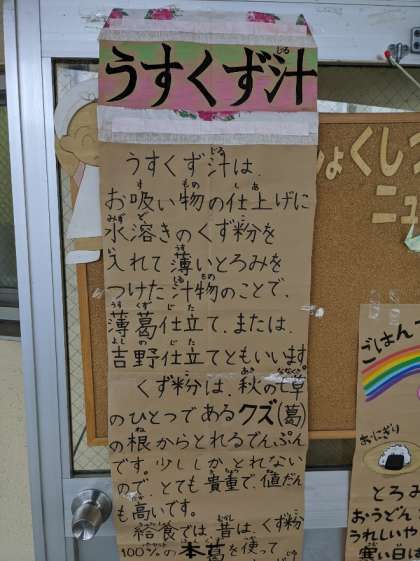 うすくず汁
うすくず汁は、
お吸い物の仕上げに
水溶きのくず粉を
入れて薄いとろみを
つけた汁物のことで、
薄葛仕立て、または、
吉野仕立てともいいます。
くず粉は、秋の七草
のひとつであるクズ(葛)
の根からとれるでんぷん
です。少ししかとれない
ので、とても貴重で、値だん
も高いです。
給食では、昔は、くず粉
100%の本葛を使って
くしつ
ニュ
ごはん
おにぎり
とろみ
おうどん
うれしいや
寒い日は